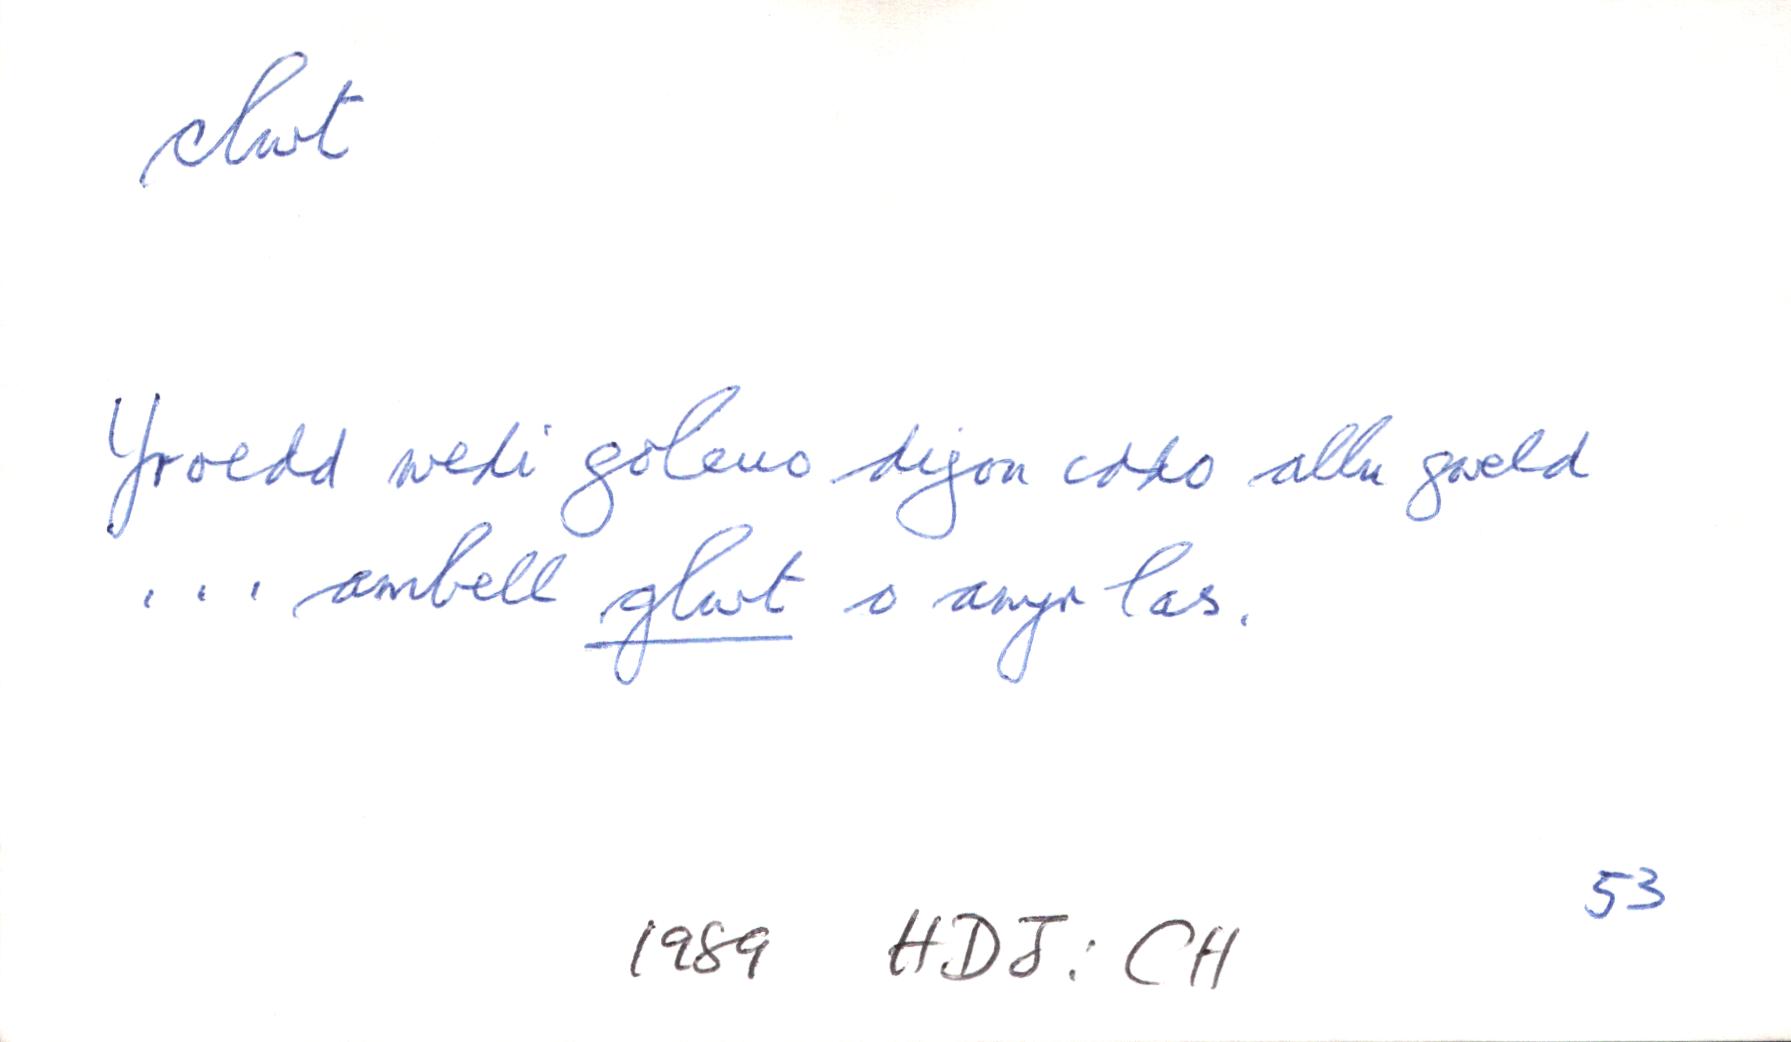 clwt
Yroedd wedi goleuo digon iddo allu gweld
... ambell glwt o awyr las.
53
1989 HDJ: CH